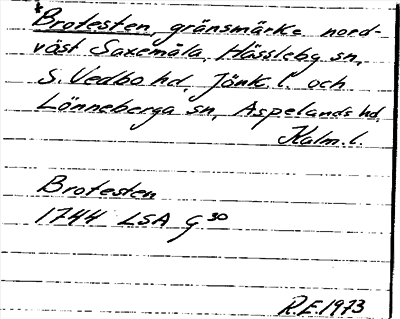 *Brotesten, gränsmärke nord-
väst Saxemåla, Hässlebg sn,
S. Vedbo hd, Jönk. l. och
Lönneberga sn, Aspelands hd,
Kalm. l.
Brotesten
1744 LSA G 30
R.E. 1973